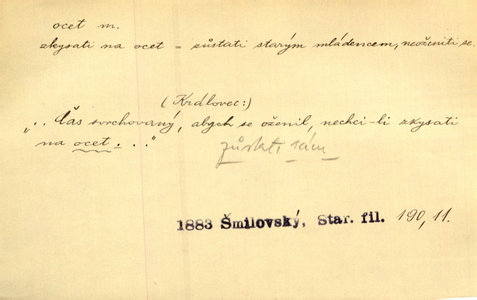 ocet m.
zkysati na ocet = zůstati starým mládencem, neoženiti se.
(Královec:)
„.. Čas svrchovaný, abych se oženil, nechci-li zkysati
na ocet . . ."
zůstati sám
1883 Šmilovský, Star. fil. 190, 11.